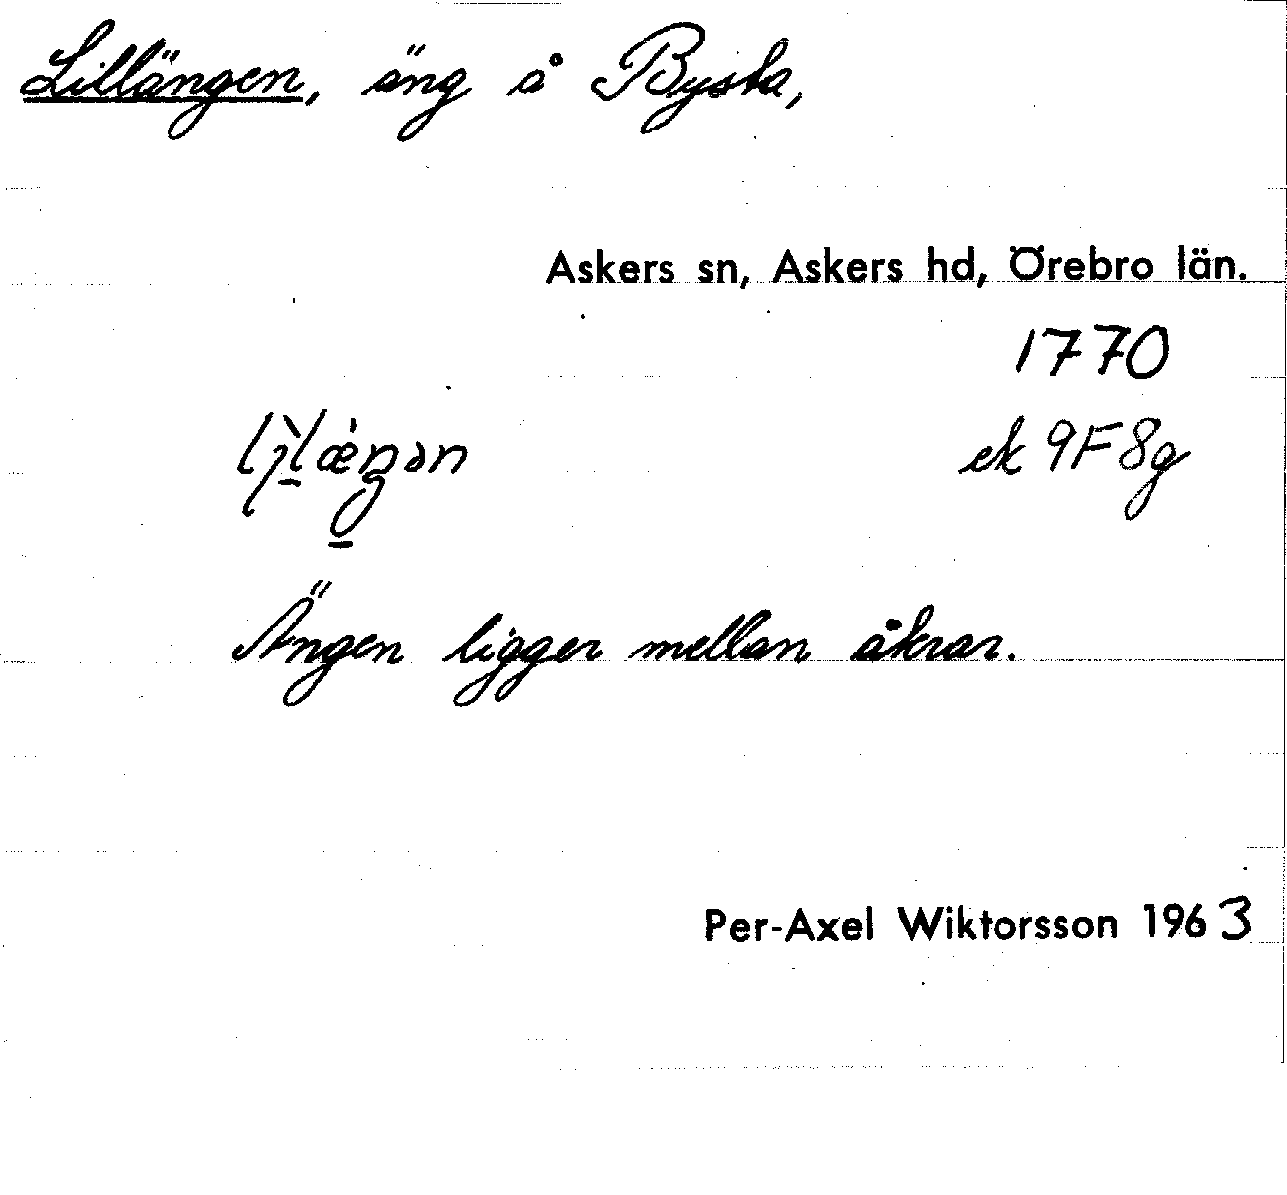 Lillängen, äng å Bysta,
Askers sn, Askers hd, Örebro län.
1770
ek 9F8g
Ängen ligger mellan åkrar.
Per-Axel Wiktorsson 1963